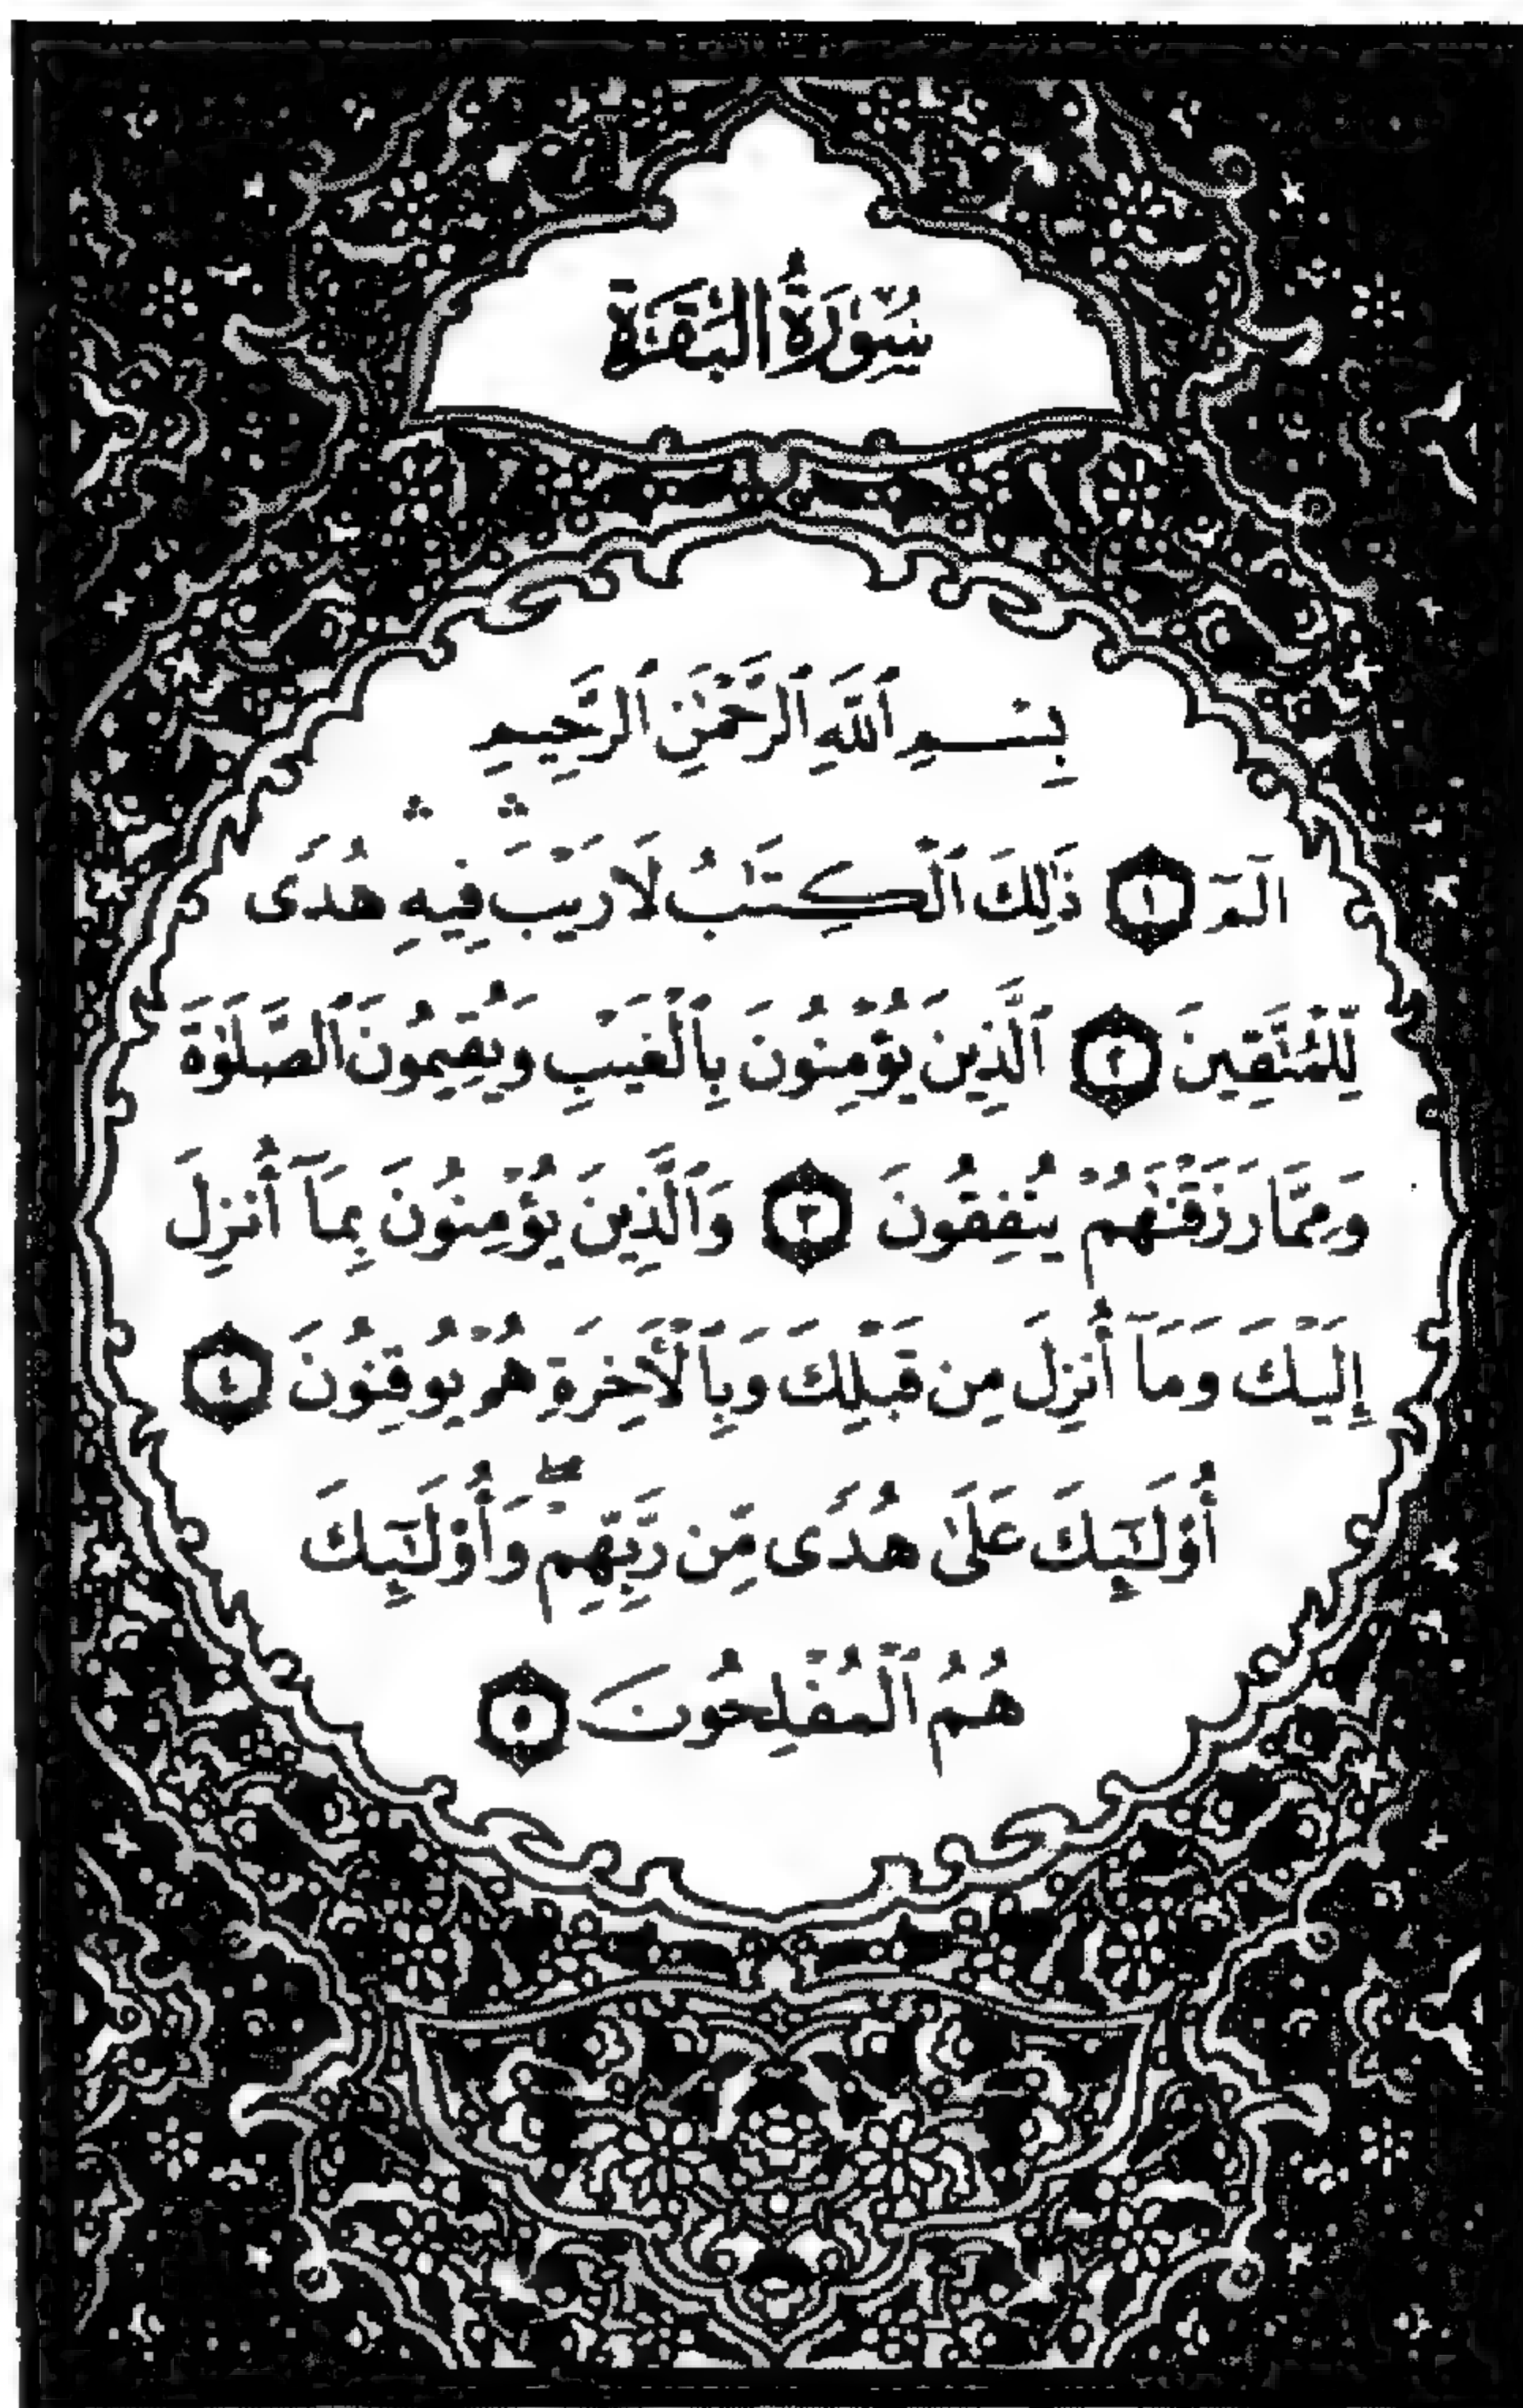 سُورَةُ البَقَرَة
بِسْمِ ٱللَّهِ ٱلرَّحْمَٰنِ ٱلرَّحِيمِ
الٓمٓ ١ ذَٰلِكَ ٱلْكِتَٰبُ لَا رَيْبَ ۛ فِيهِ ۛ هُدًى
لِّلْمُتَّقِينَ ٢ ٱلَّذِينَ يُؤْمِنُونَ بِٱلْغَيْبِ وَيُقِيمُونَ ٱلصَّلَوٰةَ
وَمِمَّا رَزَقْنَٰهُمْ يُنفِقُونَ ٣ وَٱلَّذِينَ يُؤْمِنُونَ بِمَآ أُنزِلَ
إِلَيْكَ وَمَآ أُنزِلَ مِن قَبْلِكَ وَبِٱلْأَخِرَةِ هُمْ يُوقِنُونَ ٤
أُو۟لَٰٓئِكَ عَلَىٰ هُدًى مِّن رَّبِّهِمْ ۖ وَأُو۟لَٰٓئِكَ
هُمُ ٱلْمُفْلِحُونَ ٥